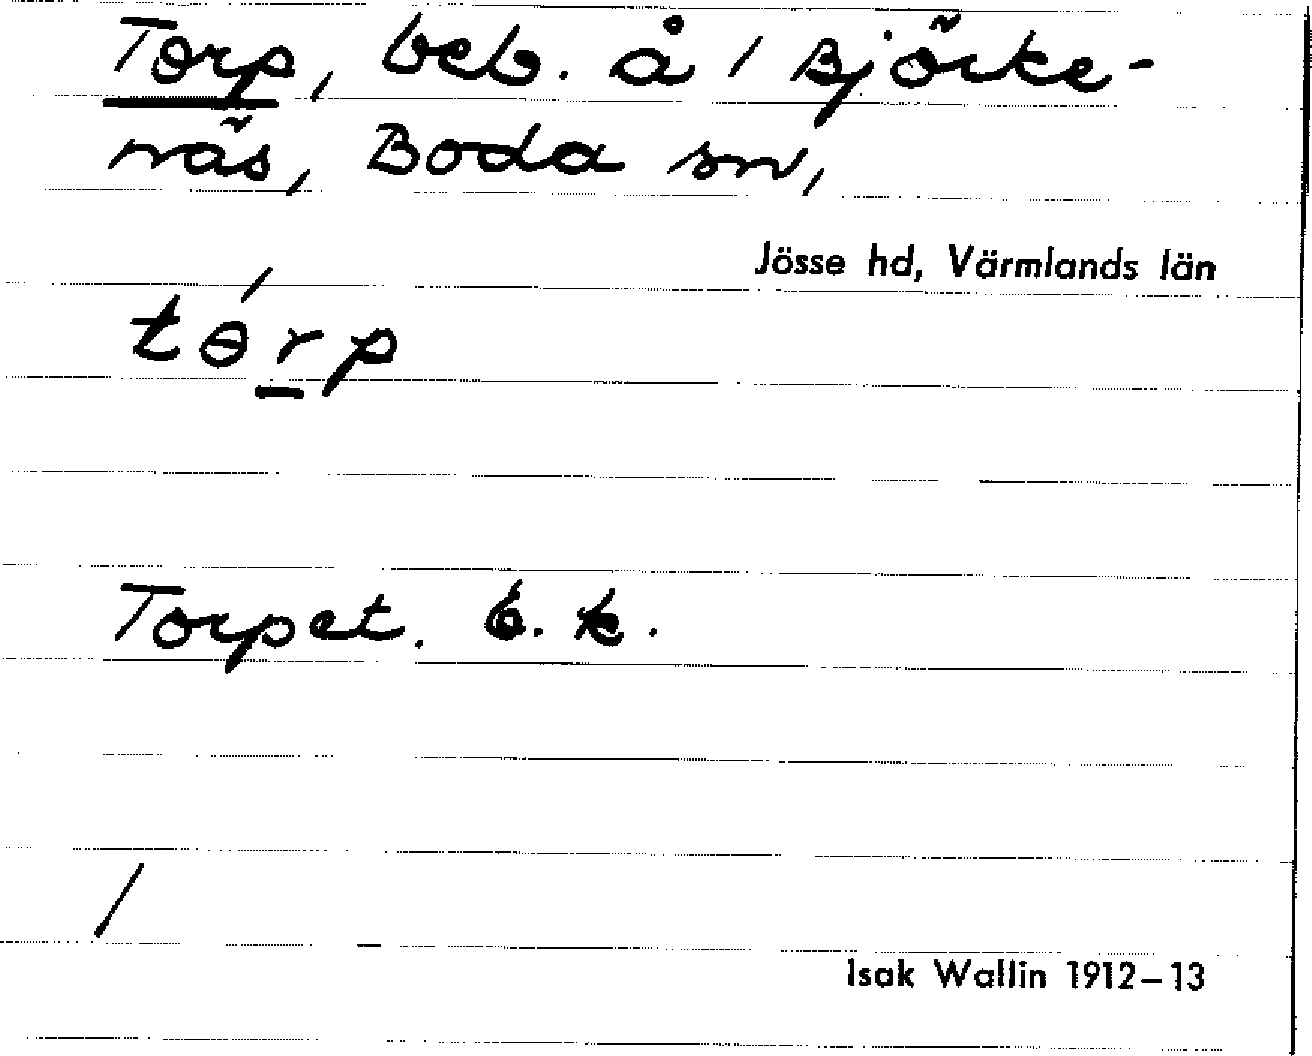 Torp, beb. å 1 Björke-
näs, Boda sn,
Jösse hd, Värmlands län
tɵ́r̲p
Torpet. E.k.
/
Isak Wallin 1912–13